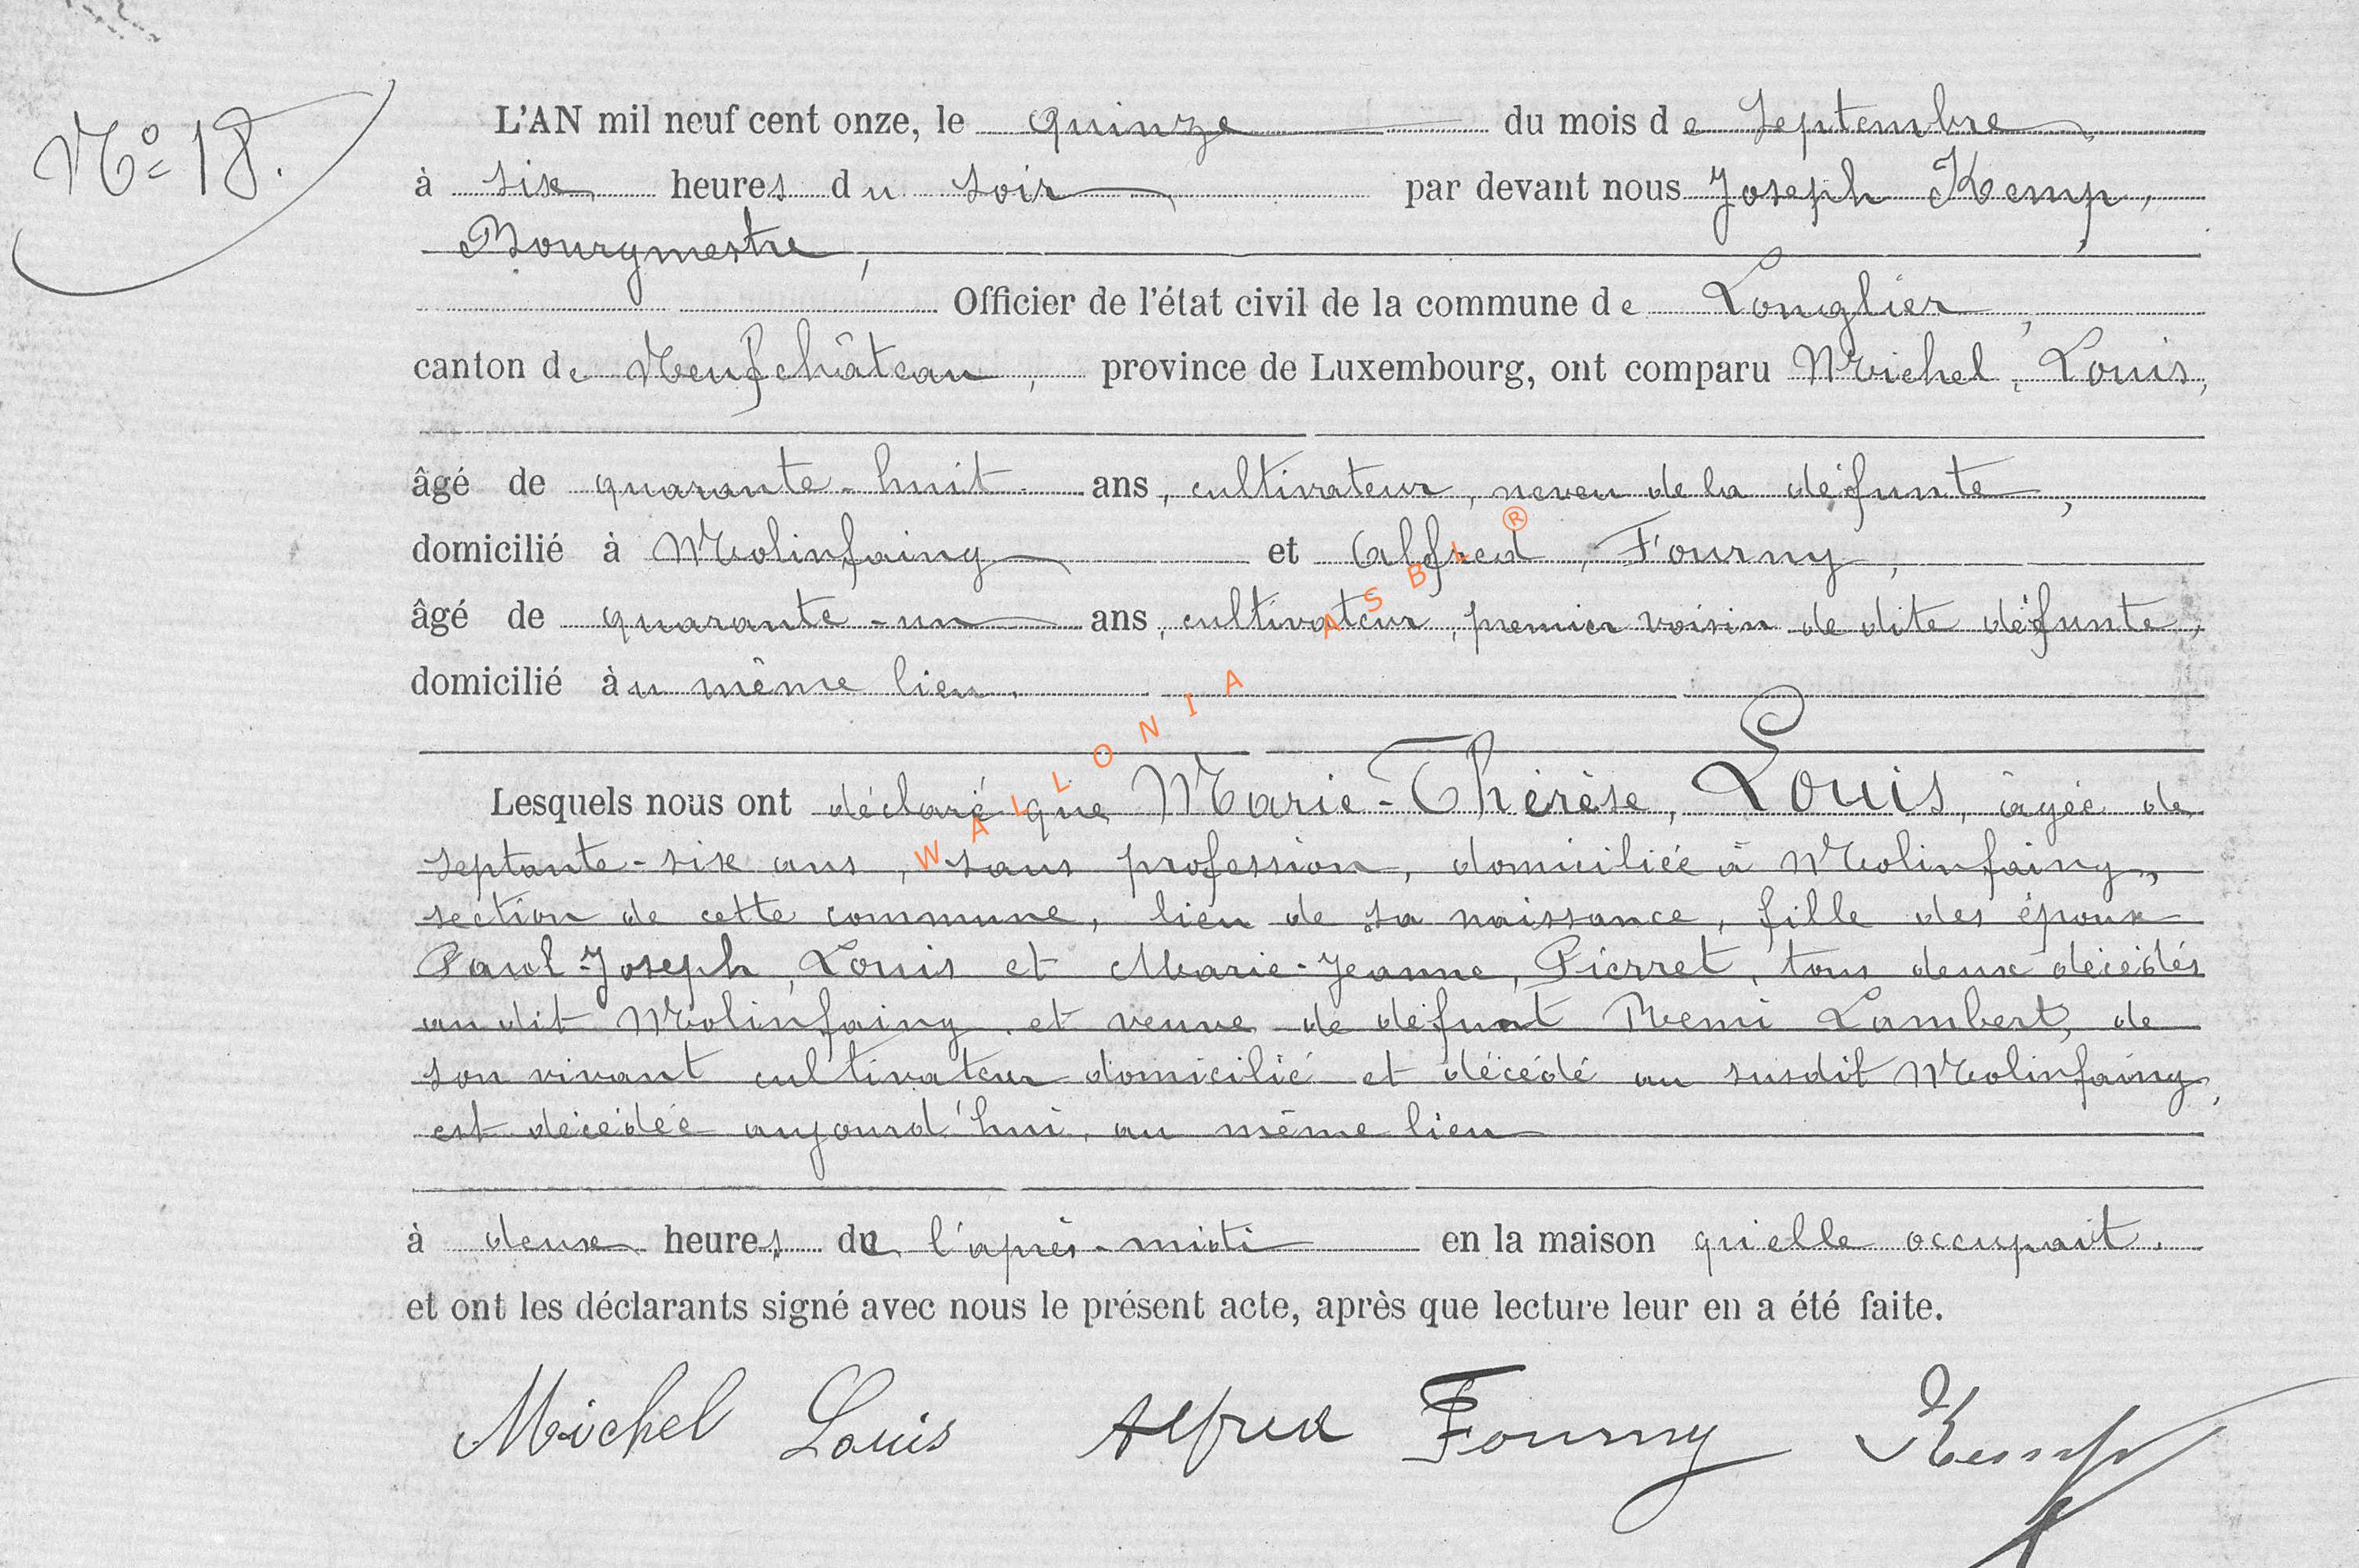 N° 18.
L'AN mil neuf cent onze, le quinze du mois de Septembre
à six heures du soir par devant nous Joseph Kemp,
Bourgmestre,
Officier de l'état civil de la commune de Longlier,
canton de Neufchâteau, province de Luxembourg, ont comparu Michel, Louis,
âgé de quarante-huit ans, cultivateur, neveu de la défunte,
domicilié à Molinfaing et Alfred, Fourny,
âgé de quarante-un ans, cultivateur, premier voisin de dite défunte,
domicilié au même lieu.
Lesquels nous ont déclaré que Marie-Thérèse, Louis, âgée de
septante-six ans, sans profession, domiciliée à Molinfaing,
section de cette commune, lieu de sa naissance, fille des époux
Paul-Joseph, Louis et Marie-Jeanne, Pierret, tous deux décédés
au dit Molinfaing et veuve de défunt Remi Lambert, de
son vivant cultivateur domicilié et décédé au susdit Molinfaing,
est décédée aujourd'hui, au même lieu
à deux heures de l'après-midi en la maison qu'elle occupait.
et ont les déclarants signé avec nous le présent acte, après que lecture leur en a été faite.
Michel Louis Alfred Fourny Kemp
WALLONIA ASBL ®